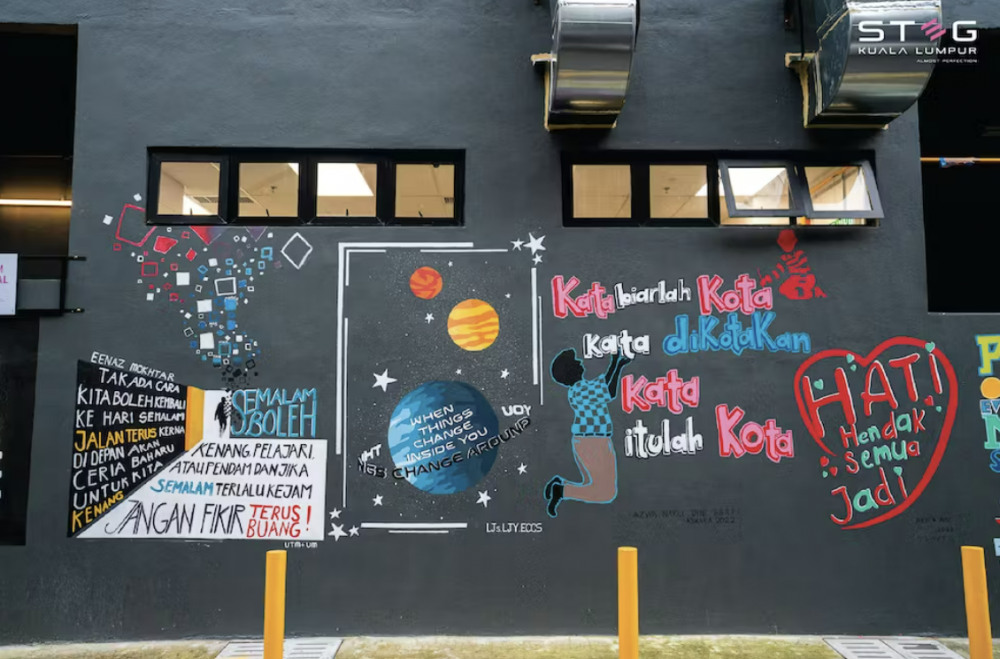 STEG
KUALA LUMPUR
ALMOST PERFECTION
EENAZ MOKHTAR
TAKADA CARA
KITA BOLEH KEMBALI
KE HARI SEMALAM
JALAN TERUS KERNA
DI DEPAN AKAN
CERIA BAHARU
UNTUK KITA
KENANG
SEMALAM
BOLEH
KENANG, PELAJARI.
ATAU PENDAM DAN JIKA
SEMALAM TERLALU KEJAM
JANGAN FIKIR TERUS
BUANG!
UTM+UM
WHEN
THINGS
CHANGE
INSIDE YOU
NGS CHANGE AROUND
UOY
LJs.LJY.ECCS
Kata biarlah Kota
kata diKotaKan
Kata
itulah Kota
HATI
Hendak
Semua
Jadi